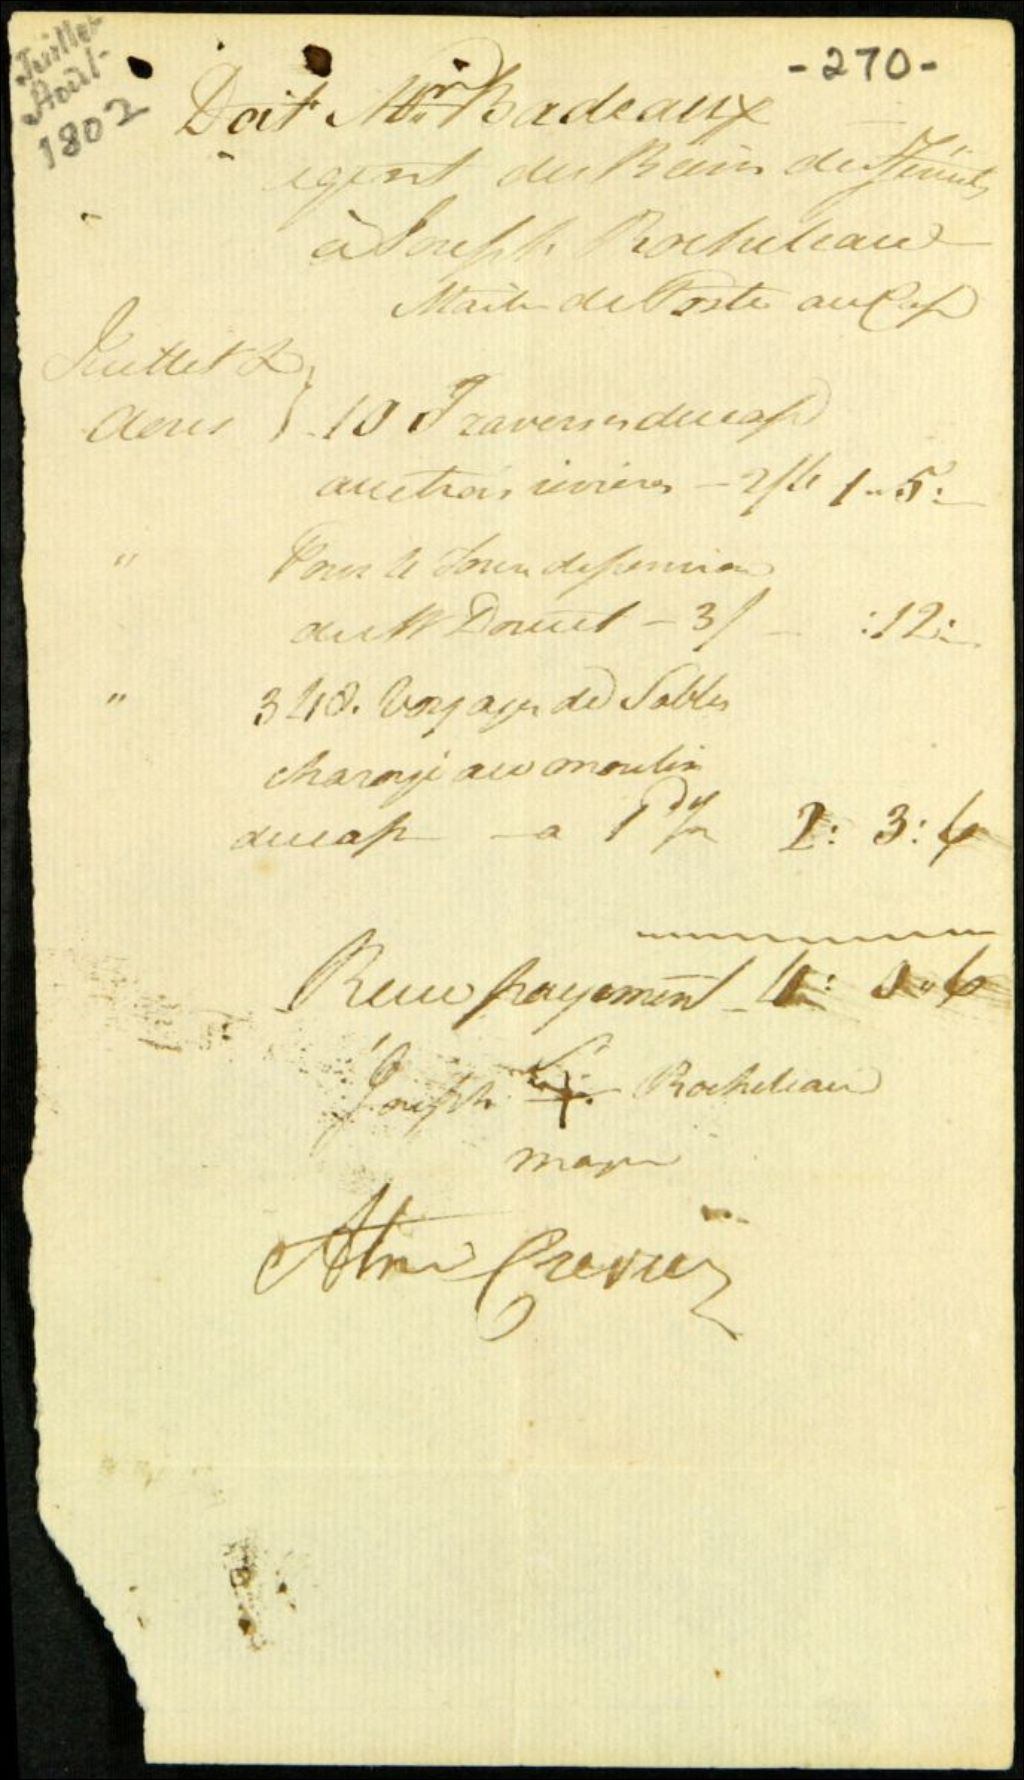 Juillet
Août
1802
-270-
Doit Mr. Badeaux
agent des Biens des Jésuites
à Joseph Rocheleau
Maitre de Poste au Cap
Juillet &
Aous } 10 Traverses du cap
au trois rivieres - 2/6 1 " 5 :
" Pour 4 Jours de pension
du Mr Doucet - 3/ - : 12 :
" 348. Voyages de Sables
charoyé au moulin
du cap - a 1 1/2 d 2 : 3 : 6
Recu payement 4 : 0 " 6
Joseph + Rocheleau
Crevier